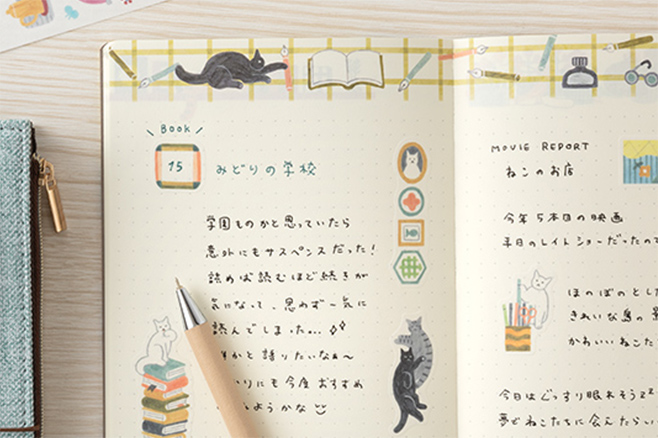 BOOK
15
みどりの学校
学園ものかと思っていたら
意外にもサスペンスだった!
読めば読むほど続きが
気になって、思わず一気に
読んでしまった...
かと語りたいなぁ〜
りにも今度おすすめ
ようかな
MOVIE REPORT
ねこのお店
今年5本目の映画
平日のレイトショーだったので
ほのぼのとした
きれいな島の
かわいいねこた
今日はぐっすり眠れそうzz
夢でねこたちに会えたらい